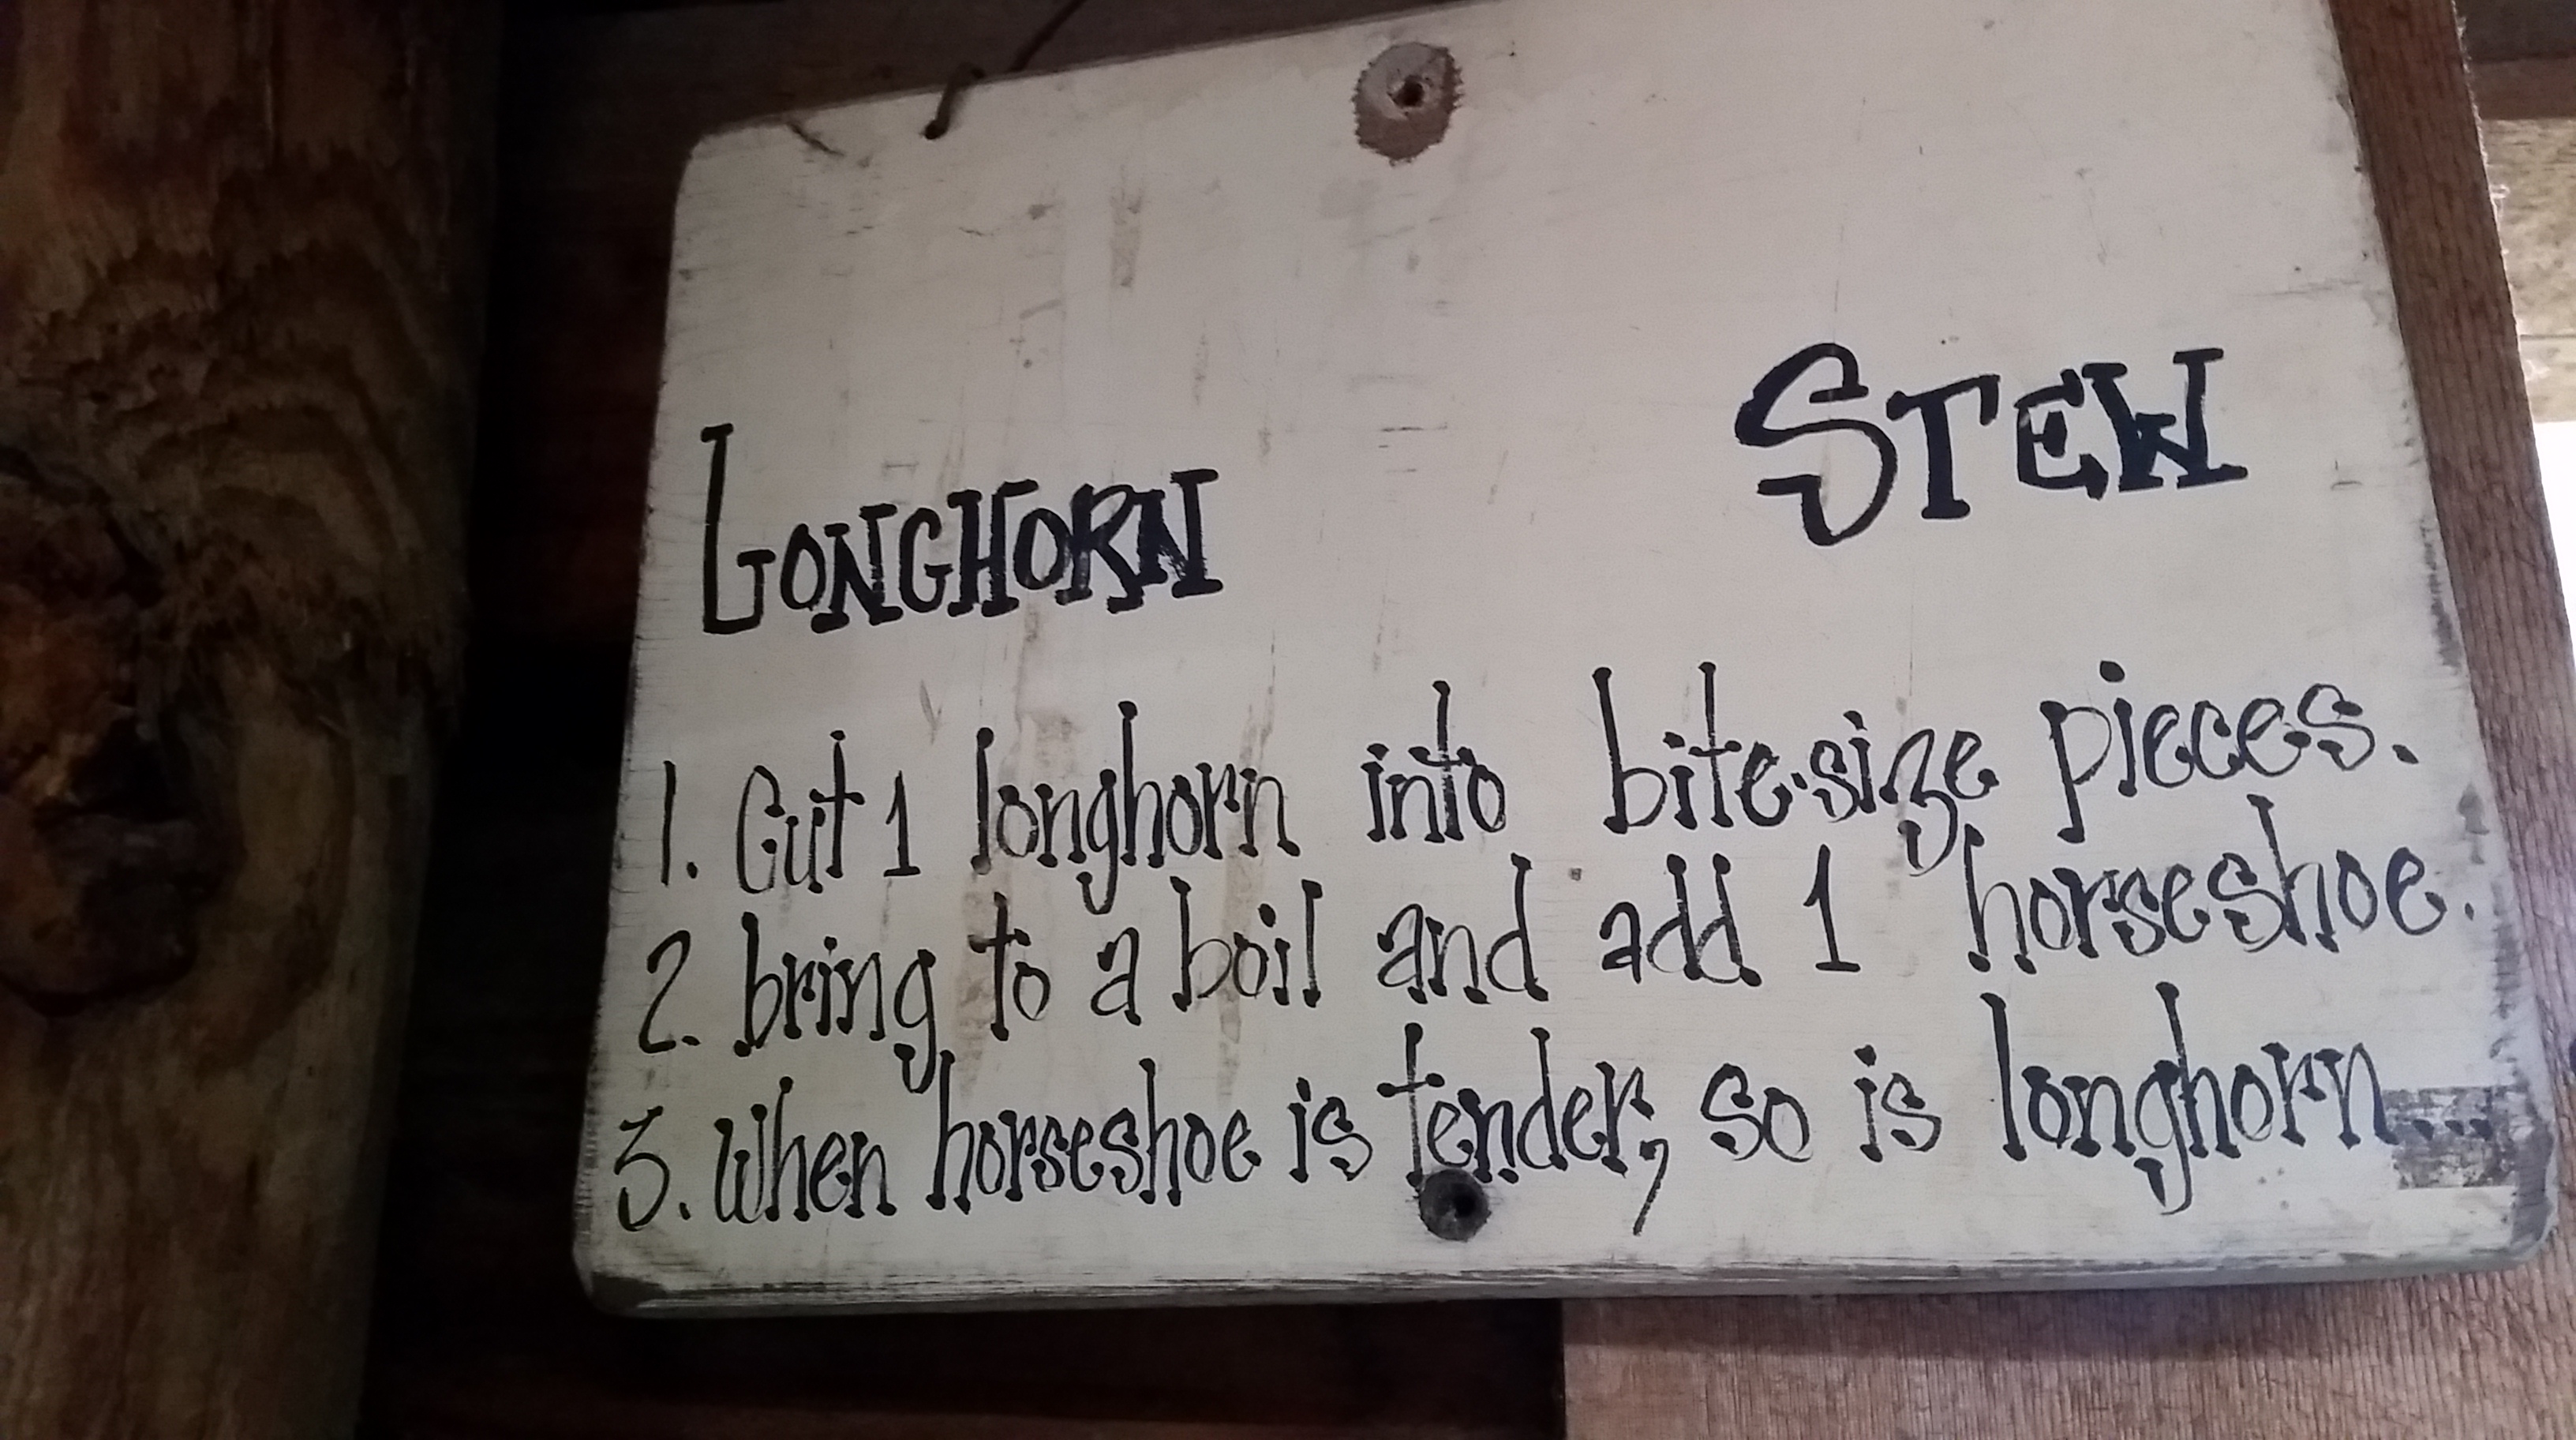 LONGHORN STEW
1. Cut 1 longhorn into bite-size pieces.
2. bring to a boil and add 1 horseshoe.
3. when horseshoe is tender, so is longhorn...